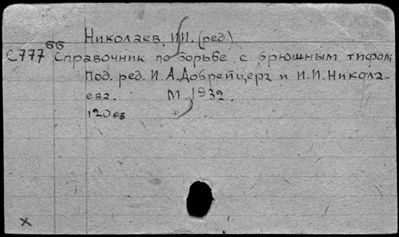 Николаев, И.И. (ред.)
С777⁶⁶ Справочник по борьбе с брюшным тифом
под. ред. И. А. Добрейцера и И.И. Никола-
ева. М. 1932.
120 с.
х